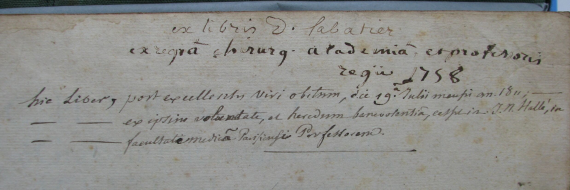 ex libris D. Sabatier
ex regiâ chirurg. academiâ et professoris
regii 1758
hic Liber, post excellentis viri obitum, die 19ª Julii mensis an. 1811,
ex ipsius voluntate, et heredum benevolentia, J. N. Hallé, in
facultate medicâ Parisiensi Professorem.